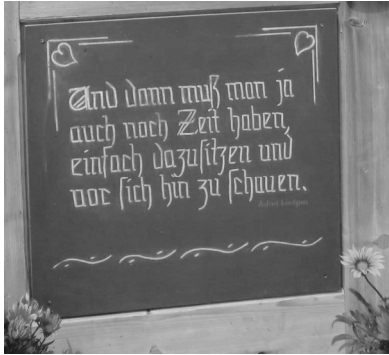 Und dann muß man ja
auch noch Zeit haben,
einfach dazusitzen und
vor sich hin zu schauen.
Astrid Lindgren